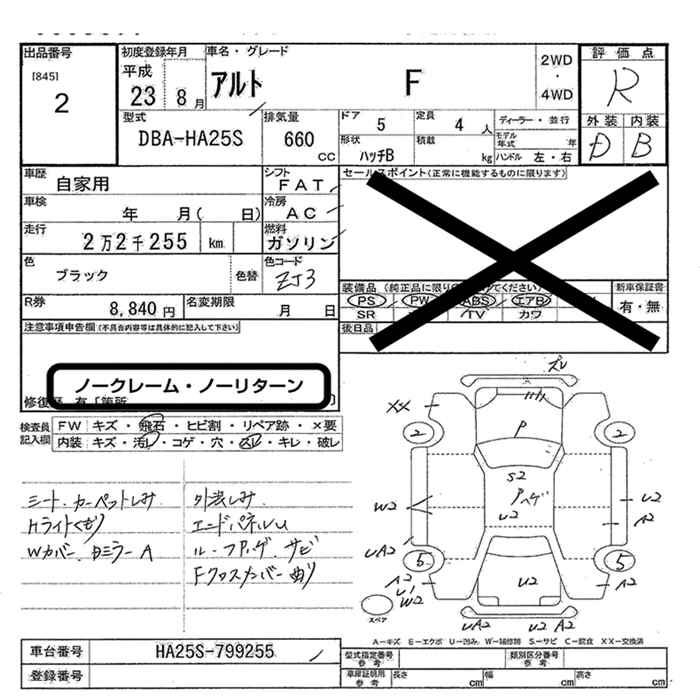 出品番号
[845]
2
初度登録年月
平成
23 8月
車名・グレード
アルト F
2WD
・
4WD
評価点
R
外装 内装
D B
型式
DBA-HA25S
排気量
660
CC
ドア 5
定員 4 人
形状 ハッチB
積載 kg
ディーラー・並行
モデル年式 年
ハンドル 左・右
車歴 自家用
シフト FAT
セールスポイント(正常に機能するものに限ります)
車検 年 月( 日)
冷房 AC
走行 2万2千255 km
燃料 ガソリン
色 ブラック 色替
色コード ZJ3
装備品(純正品に限り ください)
PS PW ABS エアB
SR TV カワ
新車保証書
有・無
後日品
R券 8,840円
名変期限 月 日
注意事項申告欄(不具合内容等は具体的に記入して下さい)
ノークレーム・ノーリターン
修復歴 有「箇所
検査員記入欄
FW キズ・飛石・ヒビ割・リペア跡・×要
内装 キズ・汚れ・コゲ・穴・スレ・キレ・破レ
シート.カーペットしみ
Hライトくもり
Wカバー.日ミラーA
外装しみ
エンドパネルU
ル-フアゲ.サビ
Fクロスカバー曲り
ズレ
XX
2 2
P
S2
アハゲ
U2
W2
U2
A2
UA2
5 5
A2
U1
W2
U2
A2
UA2 U2 A2
スペア
A-キズ E-エクボ U-凹み W-補修跡 S-サビ C-腐食 XX-交換済
車台番号 HA25S-799255
登録番号
型式指定番号参考
類別区分番号参考
車庫証明用参考
長さ cm 幅 cm 高さ cm